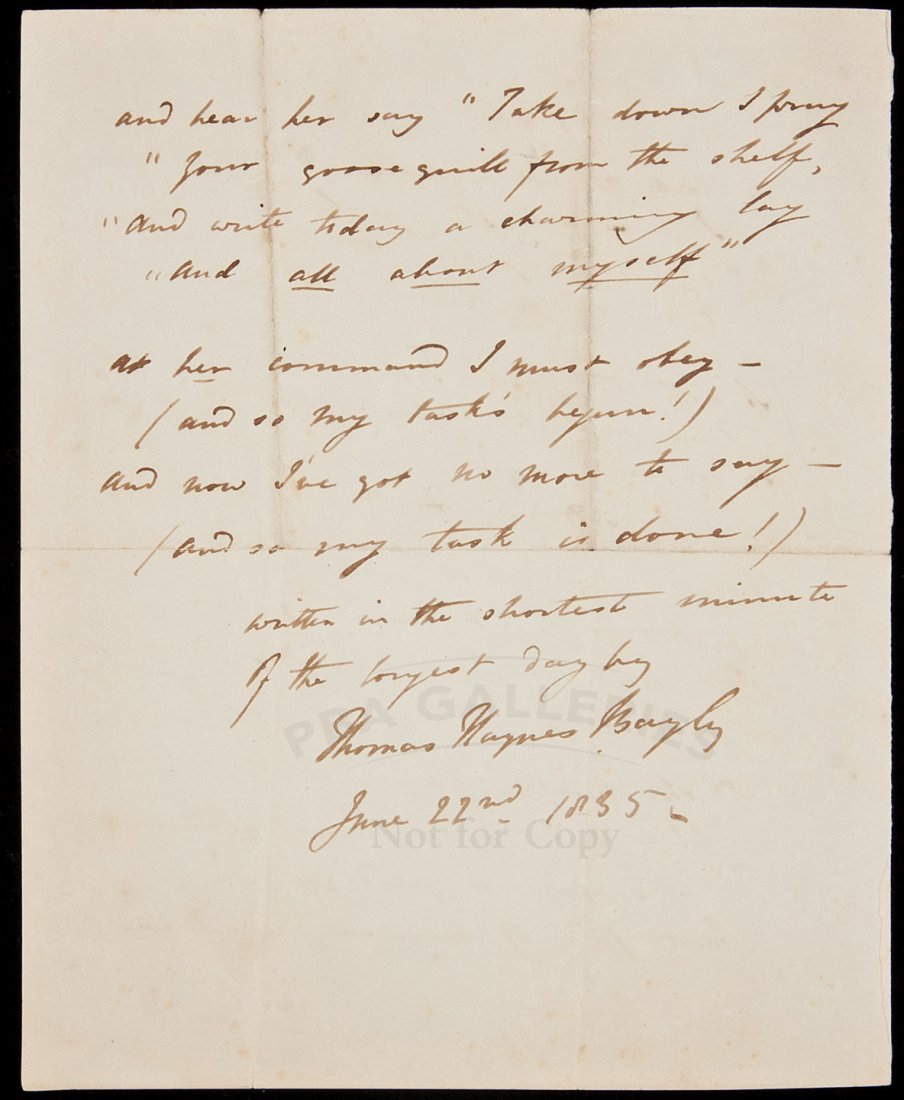 and hear her say "Take down I pray
"Your goose quill from the shelf,
"And write today a charming lay
"And all about myself"
At her command I must obey –
(and so my task's begun!)
and now I've got no more to say –
(and so my task is done!)
written in the shortest minute
of the longest day by
Thomas Haynes Bayly
June 22nd 1835.
PBA GALLERIES
Not for Copy